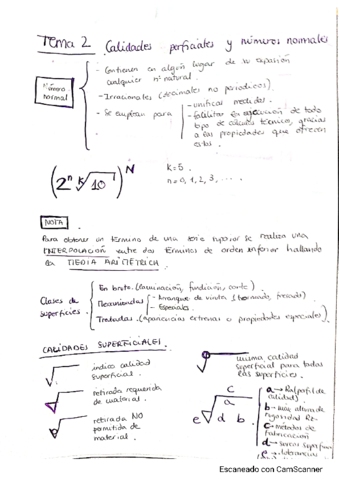 Tema 2 Calidades perficiales y números normales
Número normal
- Contienen en algún lugar de su expansión cualquier nº natural.
- Irracionales (decimales no periodicos).
- Se emplean para
- unificar medidas.
- facilitar en ejecución de todo
tipo de cálculo técnico, gracias
a las propiedades que ofrecen
estas.
(2ⁿ ᵏ√10)ᴺ
k=5.
n=0, 1, 2, 3, ....
NOTA
Para obtener un término de una serie superior se realiza una
INTERPOLACIÓN entre dos términos de orden inferior hallando
la MEDIA ARIMÉTRICA
Clases de superficies
En bruto. (laminación, fundición, corte)
Mecanizadas
- Arranque de viruta. (torneado, fresado)
- Especiales.
Tratadas. (Apariencias externas o propiedades especiales).
CALIDADES SUPERFICIALES.
indica calidad
superficial.
misma calidad
superficial para todas
las superficies.
retirada requerida
de material.
retirada NO
permitida de
material.
c
a
e d b
a → Ra (perfil de
calidad)
b →
c → métodos de
fabricación
d → surcos
e → tolerancias
Escaneado con CamScanner